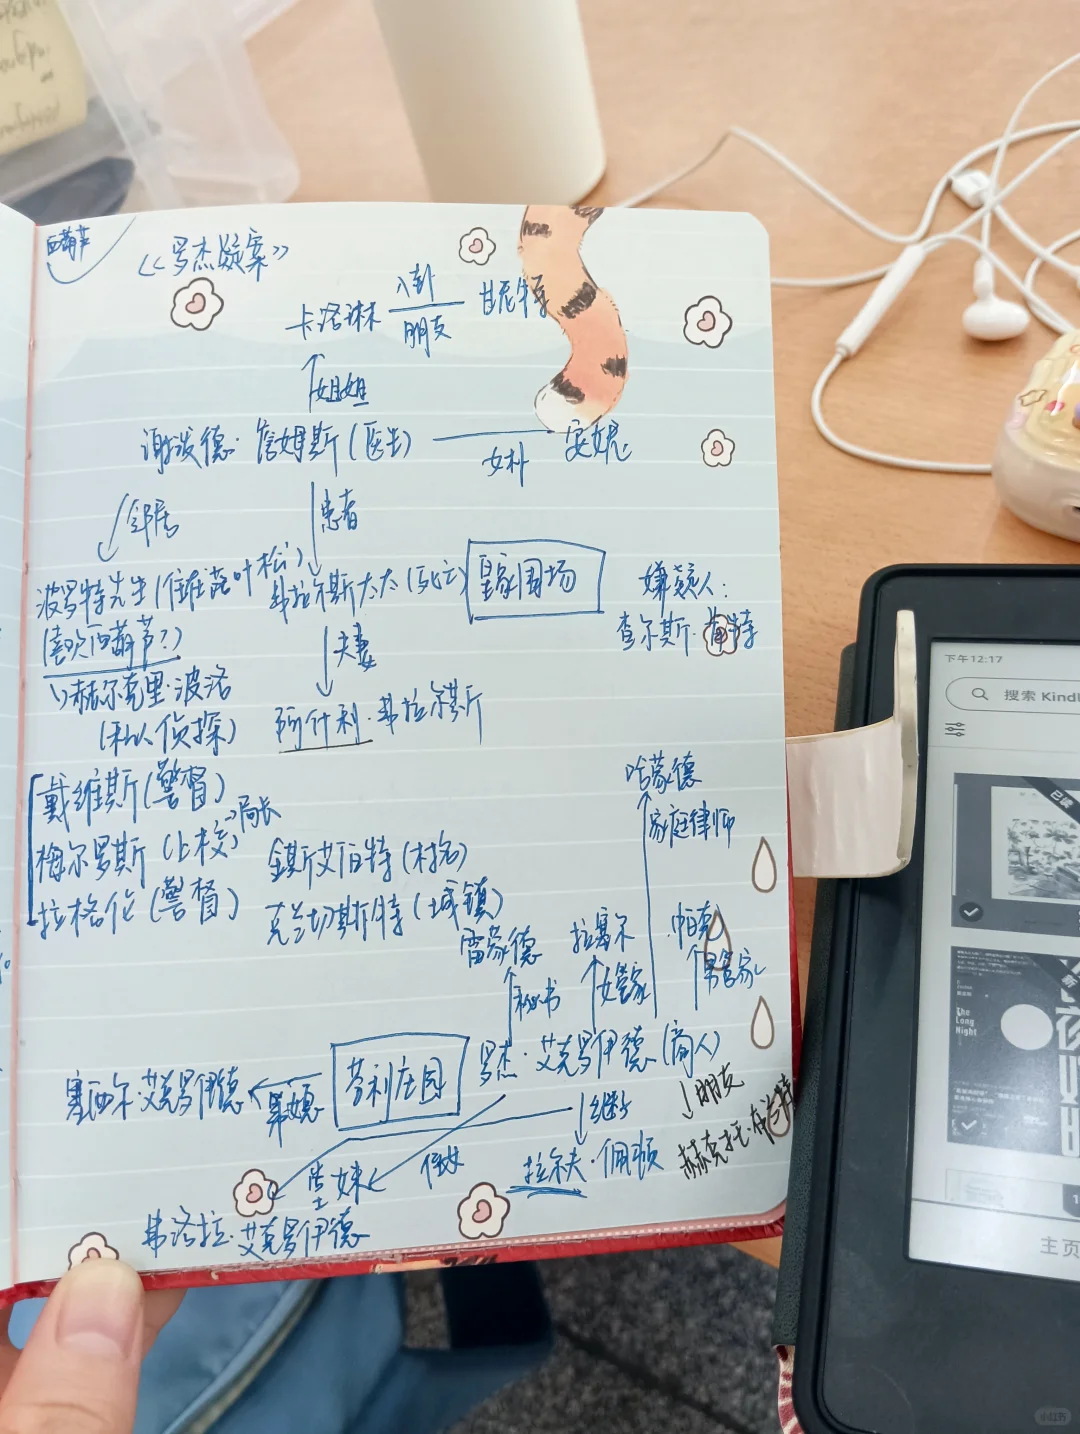 西葫芦
《罗杰疑案》
卡洛琳 八卦 甘尼特
朋友
姐姐
谢泼德·詹姆斯(医生) 安妮
女仆
邻居
患者
波罗特先生(住在落叶松)
弗拉尔斯太太(死亡) 皇家围场
嫌疑人:
查尔斯·肯特
(喜欢西葫芦?)
夫妻
赫尔克里·波洛
(私人侦探)
阿什利·弗拉尔斯
戴维斯(警督)
局长
梅尔罗斯(上校)
拉格伦(警督)
金斯艾伯特(村名)
克兰切斯特(城镇)
哈蒙德
家庭律师
雷蒙德
秘书
拉塞尔
女管家
帕克
男管家
罗杰·艾克罗伊德(商人)
芬利庄园
寡媳
塞西尔·艾克罗伊德
继子
拉尔夫·佩顿
朋友
赫克托·布兰特
侄女
堂妹
弗洛拉·艾克罗伊德
下午12:17
搜索 Kindl
已读
The
Long
Night
主页
小红书